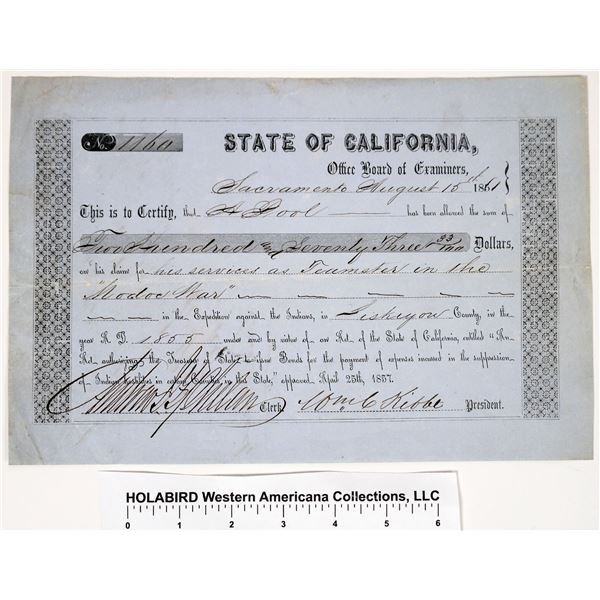 No. 1160
STATE OF CALIFORNIA,
Office Board of Examiners,
Sacramento August 15th 1861
This is to Certify, that A Pool has been allowed the sum of
Two Hundred and Seventy Three 33/100 Dollars,
on his claim for his services as Teamster in the
"Modoc War"
in the Expedition against the Indians, in Siskiyou County, in the
year A. D. 1855 under and by virtue of an Act. of the State of California, entitled "An
Act. authorizing the Treasurer of State to issue Bonds for the payment of expenses incurred in the suppression
of Indian Hostilities in certain Counties in this State," approved, April 25th, 1857.
Clerk Wm C Kibbe President.
HOLABIRD Western Americana Collections, LLC
0 1 2 3 4 5 6